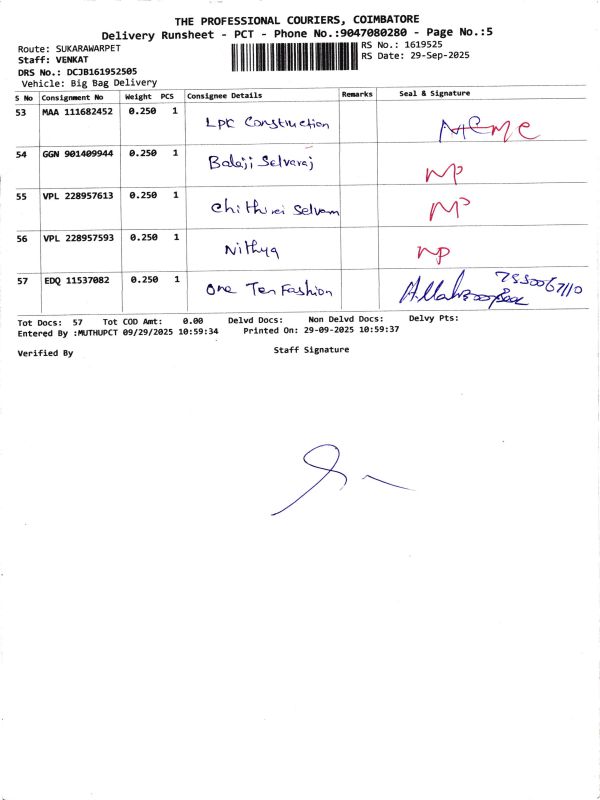 THE PROFESSIONAL COURIERS, COIMBATORE
Delivery Runsheet - PCT - Phone No.:9047080280 - Page No.:5
Route: SUKARAWARPET
RS No.: 1619525
Staff: VENKAT
RS Date: 29-Sep-2025
DRS No.: DCJB161952505
Vehicle: Big Bag Delivery
S No Consignment No Weight PCS Consignee Details Remarks Seal & Signature
53 MAA 111682452 0.250 1 LPC Construction
54 GGN 901409944 0.250 1 Balaji Selvaraj MP
55 VPL 228957613 0.250 1 Chithirai Selvam MP
56 VPL 228957593 0.250 1 Nithya np
57 EDQ 11537082 0.250 1 One Ten Fashion
Tot Docs: 57 Tot COD Amt: 0.00 Delvd Docs: Non Delvd Docs: Delvy Pts:
Entered By :MUTHUPCT 09/29/2025 10:59:34 Printed On: 29-09-2025 10:59:37
Verified By Staff Signature